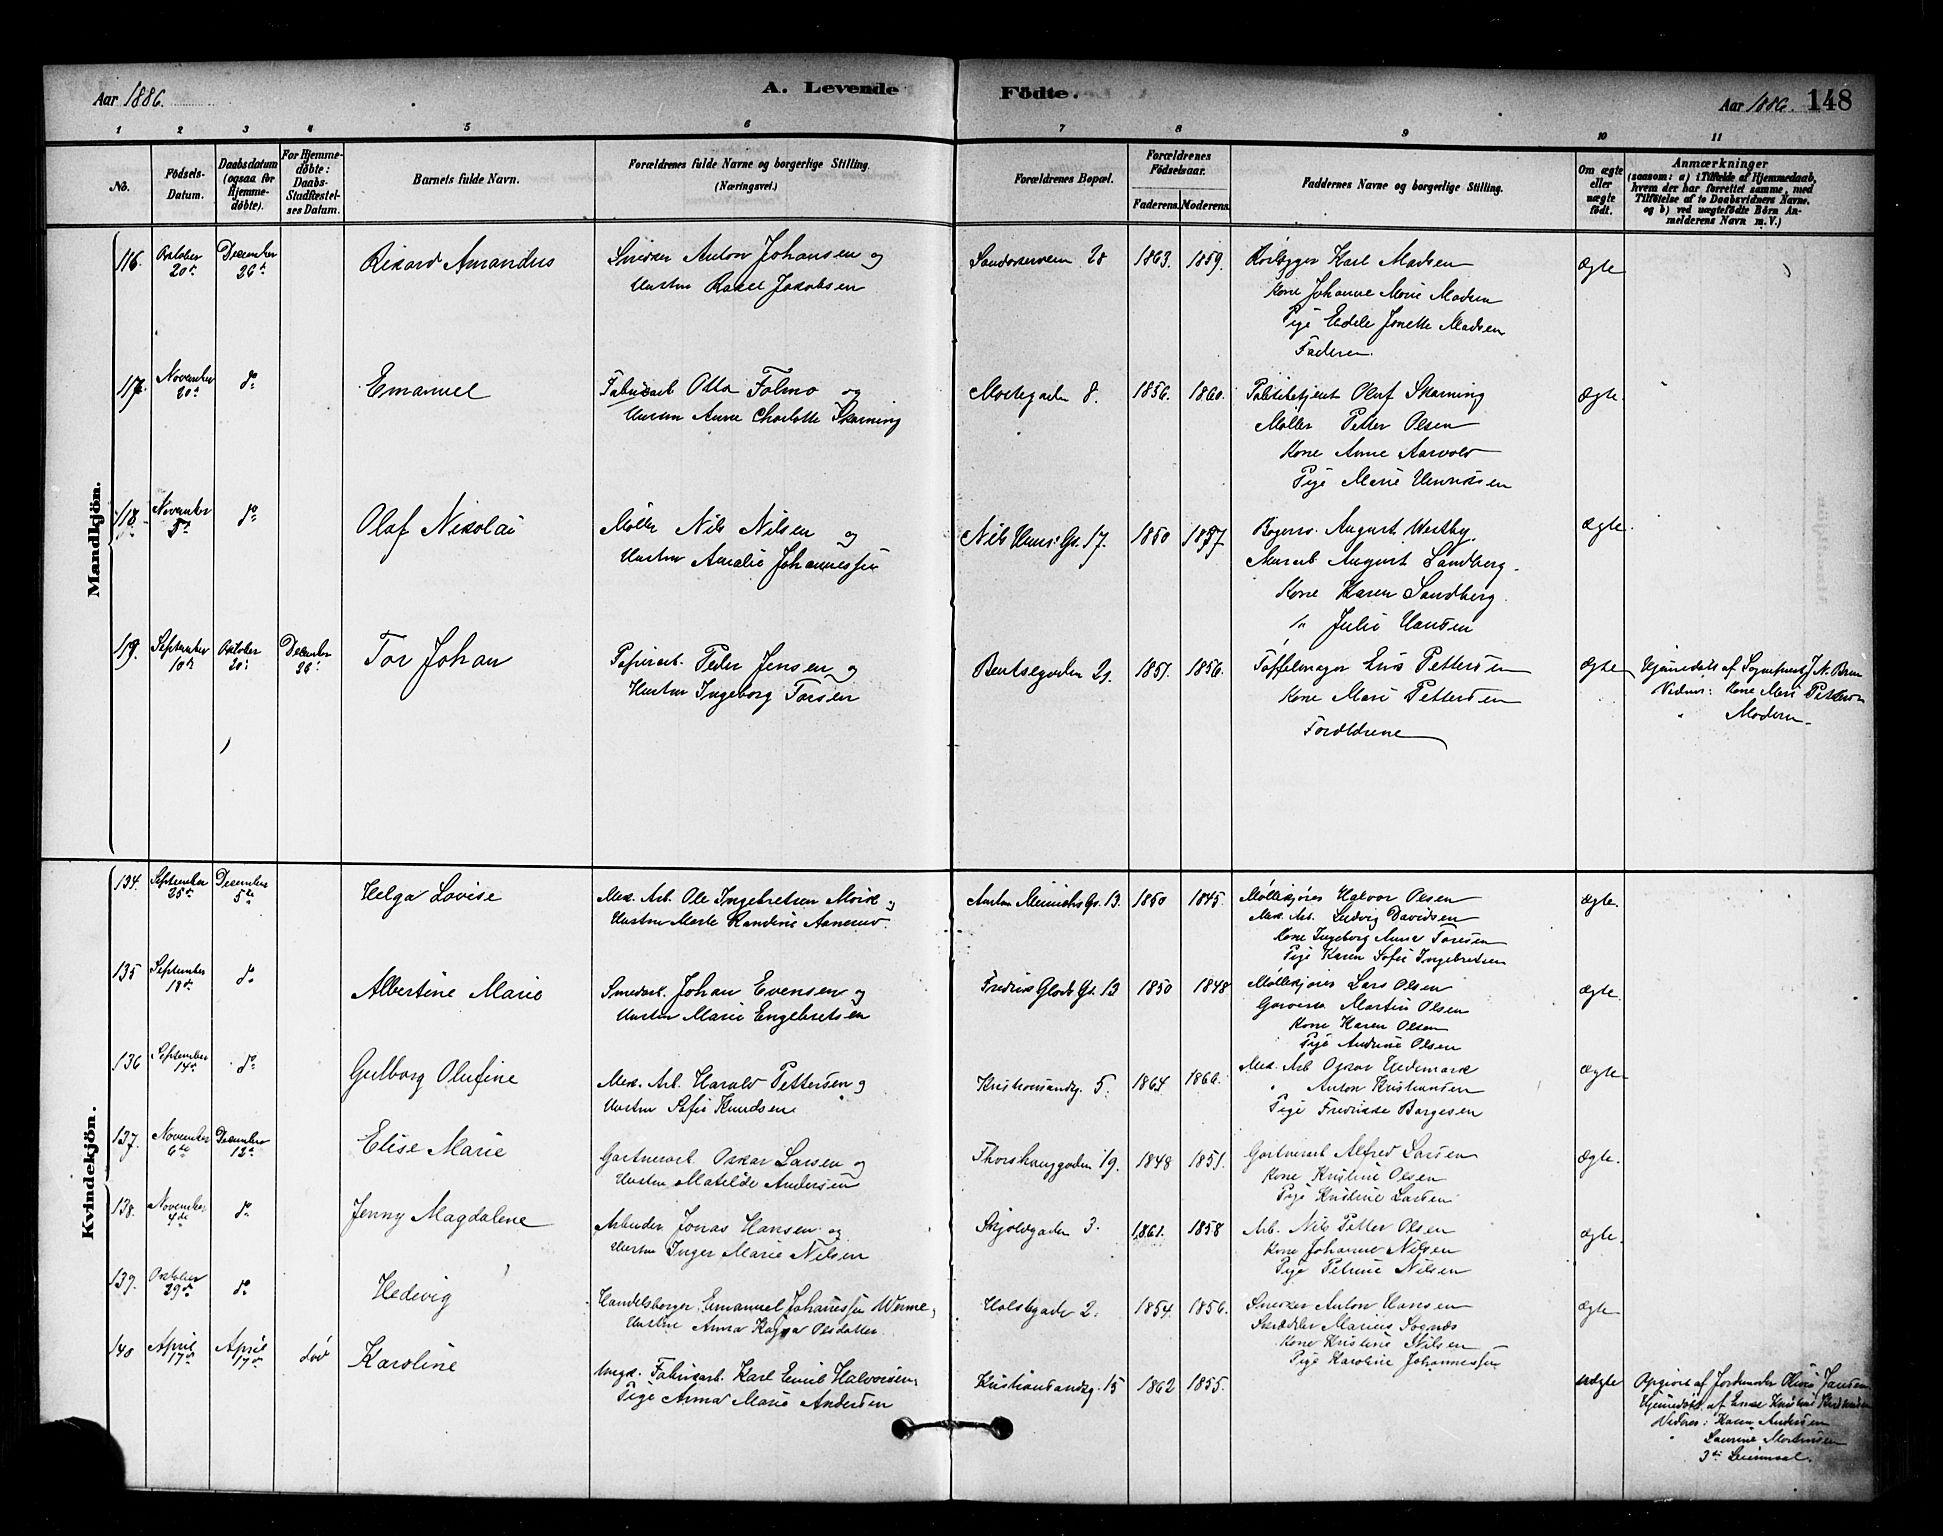 Aar 1886.
A. Levende
Födte.
Aar 1886. 148
1 2 3 4 5 6 7 8 9 10 11
No.
Födsels-Datum.
Daabsdatum (ogsaa for Hjemme-döbte).
For Hjemme-döbte: Daabs-Stadfæstel-ses Datum.
Barnets fulde Navn.
Forældrenes fulde Navne og borgerlige Stilling. (Næringsvei.)
Forældrenes Bopæl.
Forældrenes Födselsaar.
Faderens. Moderens.
Faddernes Navne og borgerlige Stilling.
Om ægte eller uægte födt.
Anmærkninger
(saasom: a) i Tilfælde af Hjemmedaab, hvem der har forrettet samme, med Tilföielse af to Daabsvidners Navne. og b) ved uægtefödte Börn An-melderens Navn m. V.)
Mandkjön.
116. Oktober 20de December 26de Rikard Amandus Snidker Anton Johansen og Sandakerveien 28 1863. 1859. Karl Madsen Ægte
Hustru Rakel Jakobsen
Kone Johanne Marie Madsen
Pige Edele Jonette Madsen
Faderen.
117. November 20de do Emanuel Fabrikarb. Otto Folmo og 8. 1856. 1860. Politibetjent Olaf Skarning Ægte.
Hustru Anne Charlotte Skarning
Møller Petter Olsen
Kone Anne Aarvold
Pige Marie Henriksen
118. November 5te do Olaf Nikolai Møller Nils Nilsen og Nils Huus' Gd. 17. 1850 1857 August Westby. Ægte.
Hustru Amalie Johannessen
Murarb. August Sandberg.
Kone Karen Sandberg.
" Julie Hansen
119. September 10de Oktober 20de December 28de Tor Johan Papirarb. Peder Jensen og Bentsegaden 21. 1851. 1856. Tøffelmager Eris Pettersen Ægte Hjemmedøbt af Sognepræst J. N. Brun
Hustru Ingeborg Torsen
Kone Mari Pettersen
Vidner: Kone Mari Pettersen
Forældrene
" Moderen.
Kvindekjön.
134. September 25de December 5te Helga Lovise Mek. Arb. Ole Ingebretsen Moise og Anton Meinichs Gd. 13. 1850 1845. Møllekjører Halvor Olsen Ægte.
Hustru Marte Randine Aanerud.
Mek. Arb. Ludvig Davidsen
Kone Ingeborg Anna Toresen
Pige Karen Sofie Ingebretsen
135 September 18de do Albertine Marie Smedarb. Johan Evensen og Fredrik Glads Gd. 13 1850 1848 Møllekjører Lars Olsen Ægte.
Hustru Marie Engebretsen
Garver Martin Olsen
Kone Karen Olsen
Pige Andrine Olsen
136 September 14de do Gulborg Olufine Mek. Arb. Harald Pettersen og Kristiansandsg. 5. 1864 1866. Mek. Arb. Oskar Hedemark Ægte
Hustru Sofie Knudsen
" Anton Kristiansen
Pige Fredrikke Borgesen
137. November 6te December 12te Elise Marie Gartnerarb. Oskar Larsen og Thorshauggaden 19. 1848 1851. Gartnerarb. Alfred Larsen Ægte.
Hustru Matilde Andersen
Kone Kristine Olsen
Pige Kristine Larsen
138. November 4de do Jenny Magdalene Arbeider Jonas Hansen og Skjoldgaden 3. 1861. 1858 Arb. Nils Petter Olsen Ægte.
Hustru Inger Marie Nilsen
Kone Johanne Nilsen
Pige Petrine Nilsen
139. Oktober 29de do Hedevig Handelsborger Emanuel Johannessen Werme og Holstgade 2. 1854 1856. Snekker Anton Hansen Ægte
Hustru Anna Olsdatter
Skrædder Marius Sognæs
Kone Kristine Nilsen
Pige Karoline Johannessen
140 April 17de April 17de død Karoline Ungk. Fabrikarb. Karl Emil Halvorsen Kristiansandsg. 15 1862 1855. Uægte Opgivet af Jordemoder Olivia Jansen
Pige Anna Marie Andersen
Hjemmedøbt af Enke Kristine
Vidner: Karen Andersen
" Laurine Mortensen
3die Leiermaal.